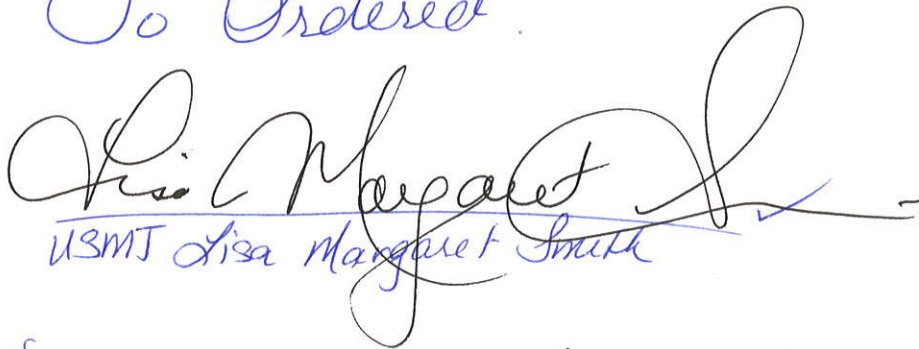 So Ordered.
Lisa Margaret S
USMJ Lisa Margaret Smith